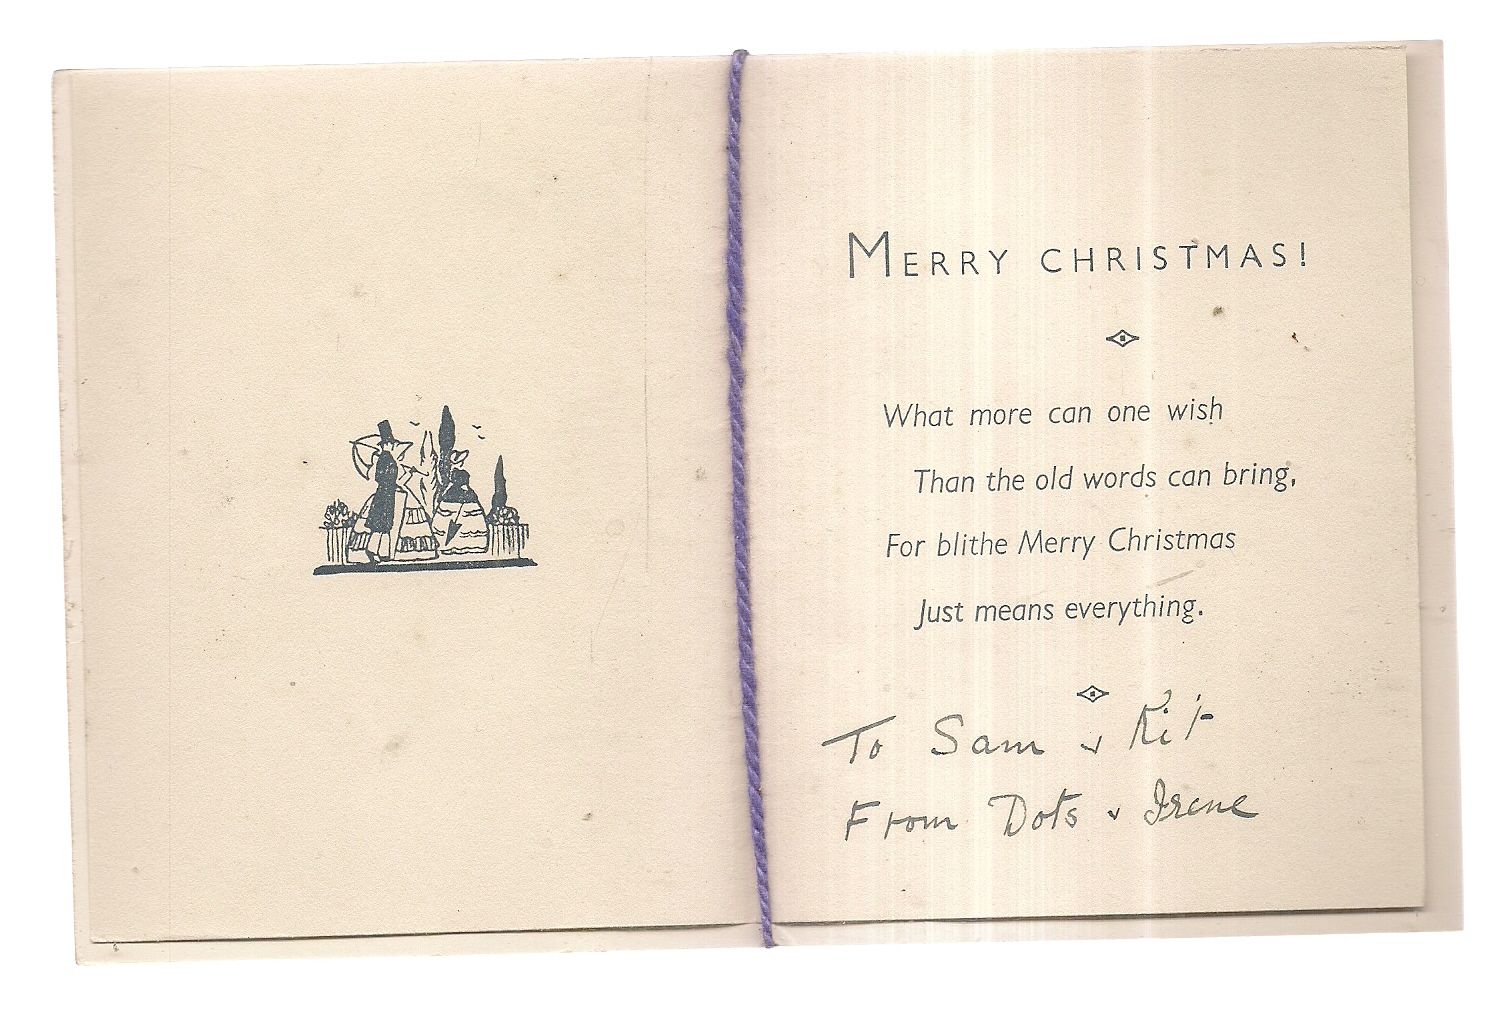 MERRY CHRISTMAS!
What more can one wish
Than the old words can bring,
For blithe Merry Christmas
Just means everything.
To Sam & Kit
From Dots & Irene